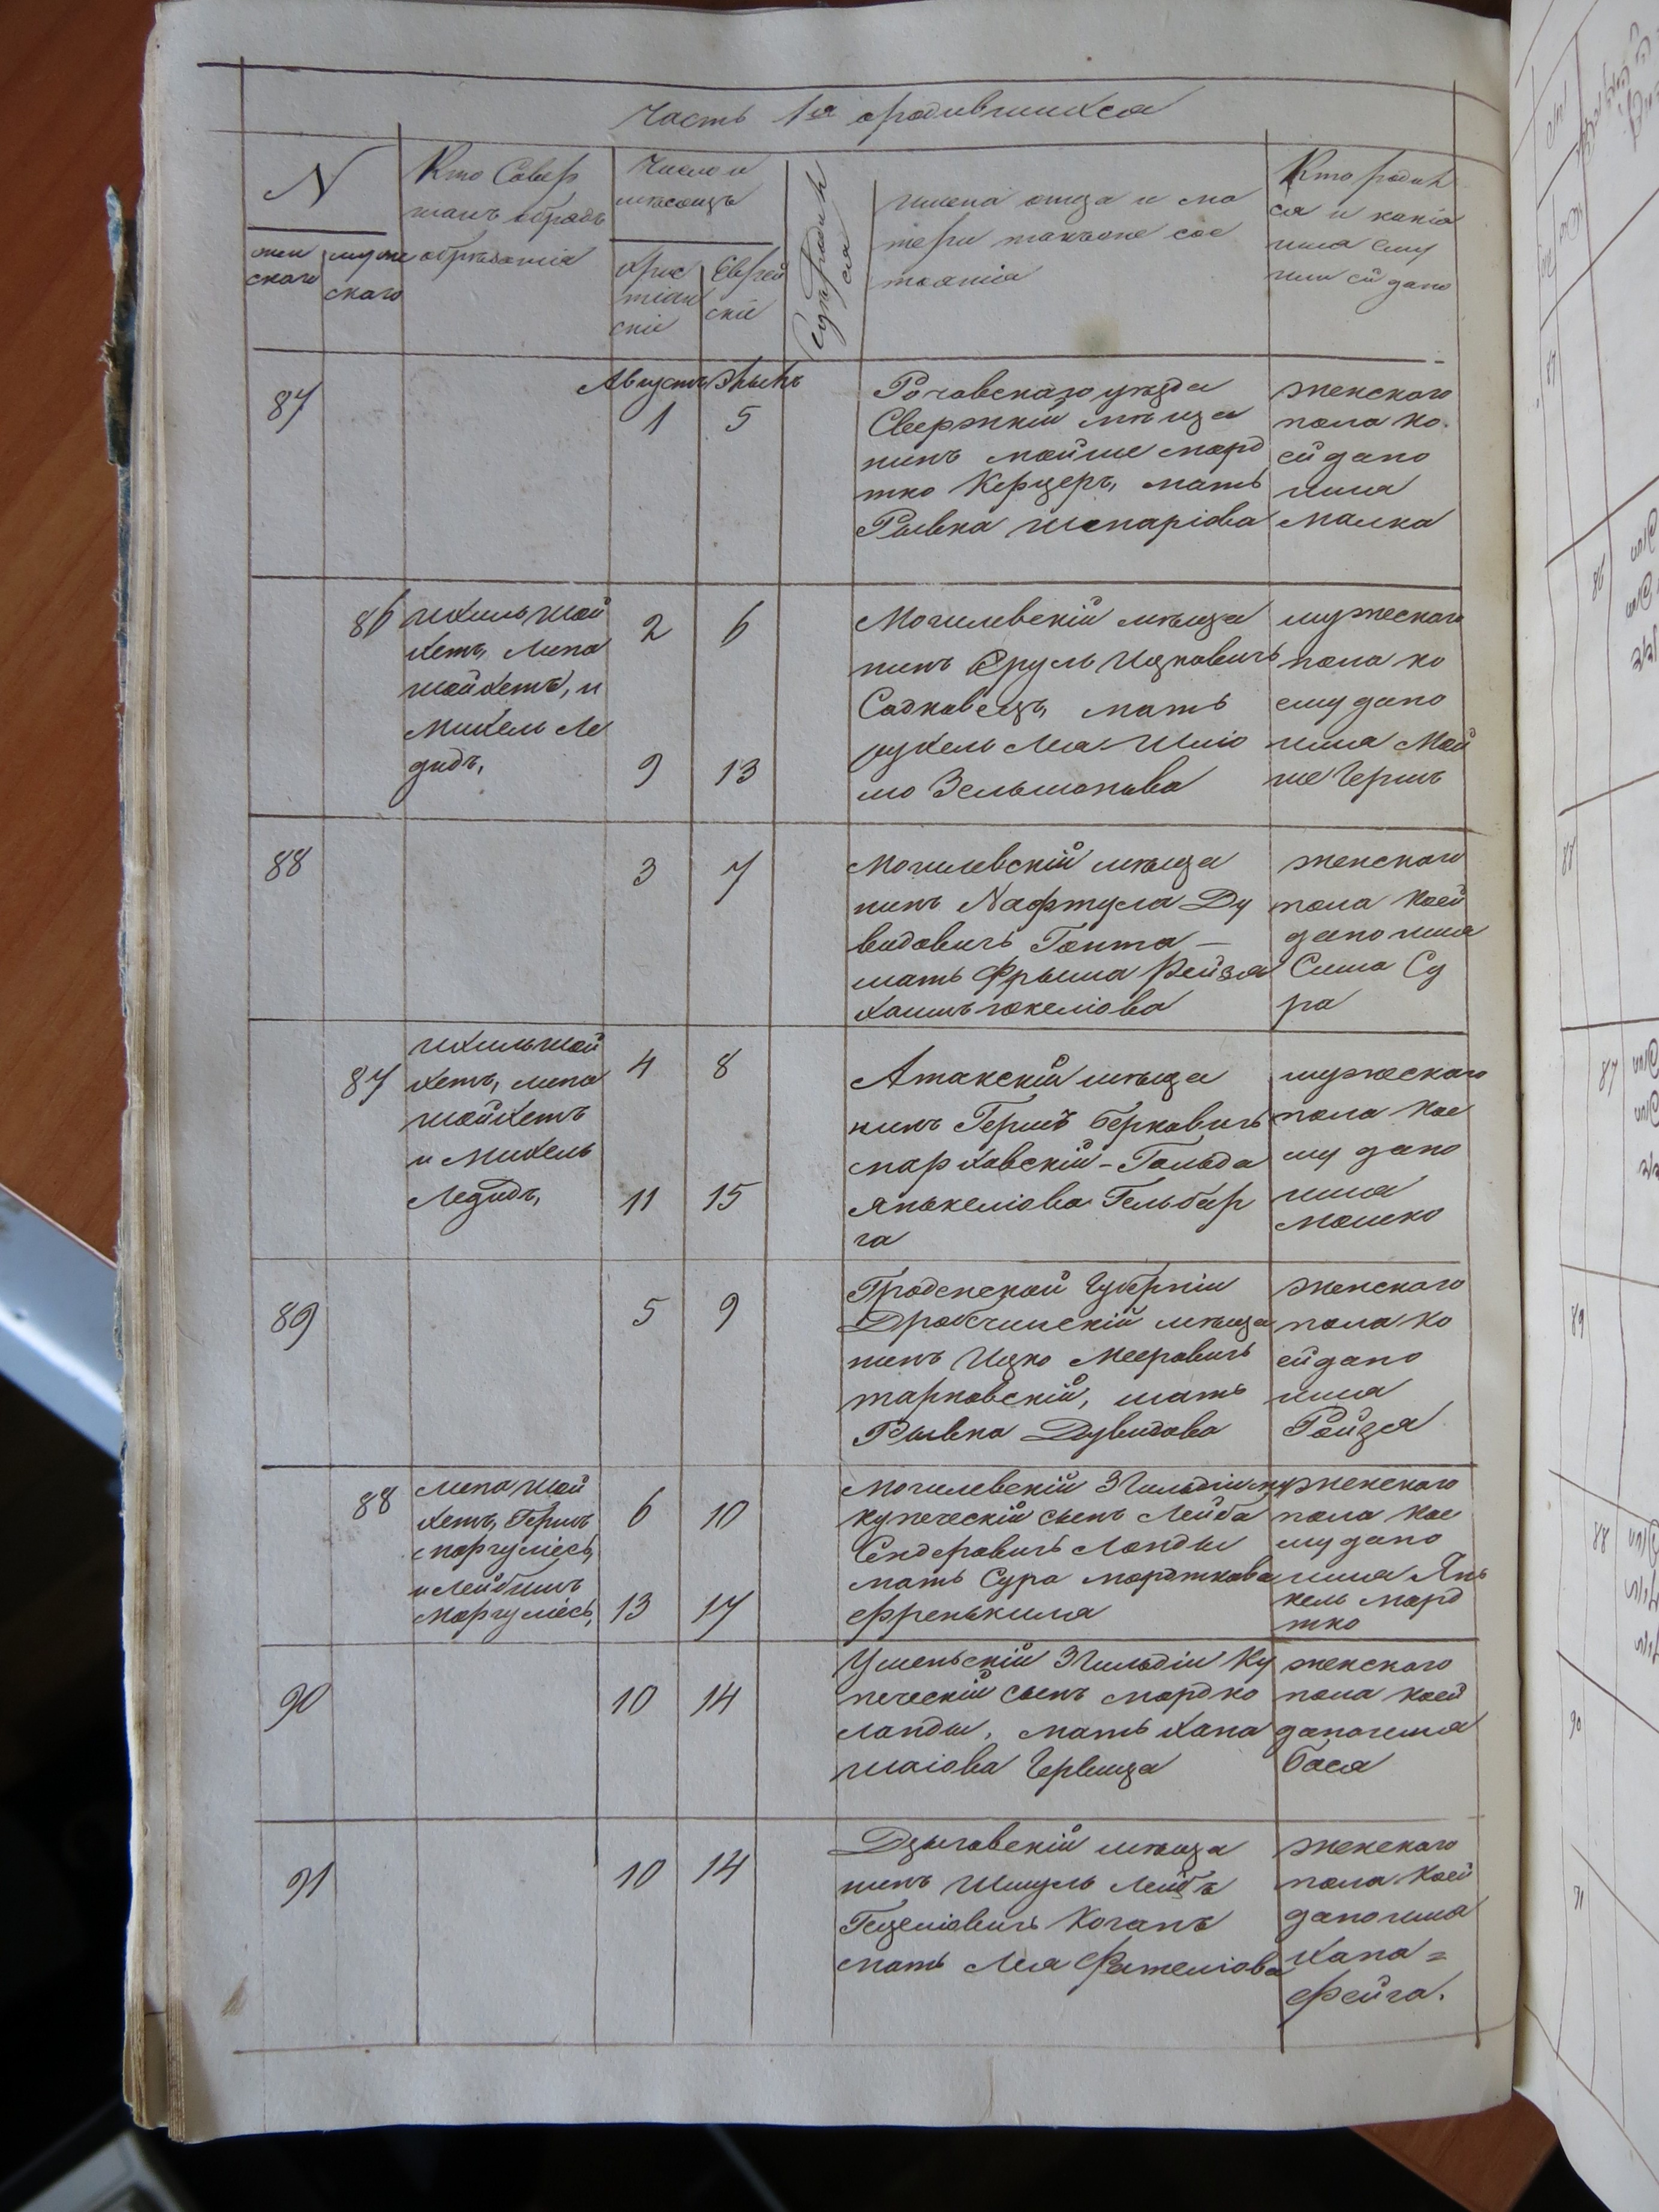 Часть 1я о родившихся
N
женскаго
мужескаго
Кто Совер
шалъ обрядъ
обрѣзанія
Число и
мѣсяцъ
Хрис
тіан
скій
Еврей
скій
Гдѣ родил
ся
имена отца и ма
тери также сос
тоянія
Кто родил
ся и какіа
имя ему
или ей дано
Августъ
87
1 5
уѣзда
мѣща
нинъ Мойше Морд
тко Керцеръ, мать
Рывка
женского
пола ко
ей дано
имя
Малка
86
Ихиль Шой
хетъ, Липа
шойхетъ, и
Михель Ле
2 6
9 13
Могилевскій мѣща
нинъ Сруль Ицковичъ
Садковецъ, мать
Рухель Леа Шлio
мо Зельманова
мужескаго
пола ко
ему дано
имя Мой
ше Гершъ
88
3 7
Могилевскій мѣща
нинъ Нафтула Ду
видовичъ Гонта —
мать Фрыма Рейзя
женского
пола коей
дано имя
Сима Су
ра
87
Ихиль шой
хетъ, липа
шойхетъ
и Михель
4 8
11 15
Атакскій мѣща
нинъ Гершъ Берковичъ
Мархавскій – Гольда
Янокеліова Гельбер
га
мужескаго
пола кое
му дано
имя
Мошко
89
5 9
Гродненской Губерніи
мѣща
нинъ Ицко Мееровичъ
тарковскій, мать
Рывка Дувидова
женскаго
пола ко
ей дано
имя
Ройзя
88
Липа шой
хетъ, Гершъ
Моргулiесъ,
и Лейбишъ
Моргулiесъ,
6 10
13 17
Могилевскій 3 Гильдіи ку
купеческій сынъ Лейба
Сендеровичъ Ланды
мать Сура Мордткова
Френкиля
женскаго
пола кое
му дано
имя Янь
кель Морд
тко
90
10 14
Уменьскій 3 Гильдіи Ку
печескій сынъ Мордко
Ланды, мать Хана
женского
пола коей
дано имя
Бася
91
10 14
Дзыговскій мѣща
нинъ Шмуль Лейбъ
Гецеліовичъ Коганъ
мать Лея
женского
пола коей
дано имя
Хана =
Фейга.